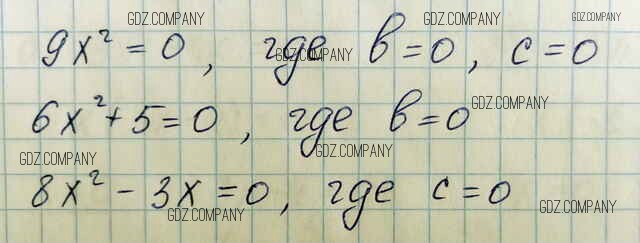 GDZ.COMPANY GDZ.COMPANY GDZ.COMPANY
9x² = 0, где в = 0, с = 0
GDZ.COMPANY
GDZ.COMPANY
6x² + 5 = 0, где в = 0
GDZ.COMPANY GDZ.COMPANY
8x² - 3x = 0, где с = 0
GDZ.COMPANY GDZ.COMPANY